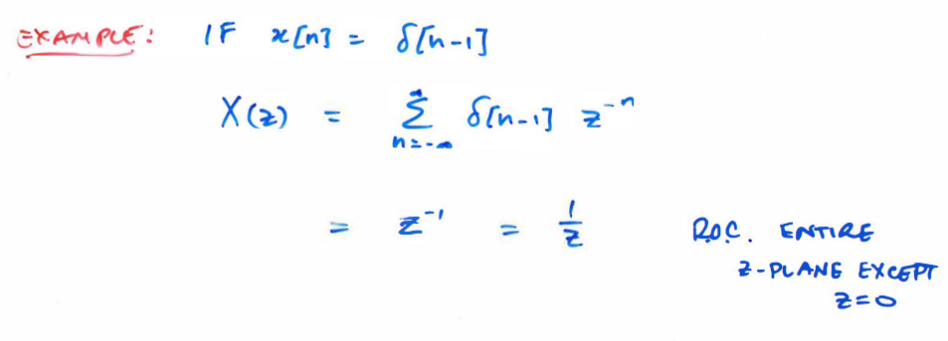 EXAMPLE: IF x[n] = δ[n-1]
X(z) = ∞∑n=-∞ δ[n-1] z⁻ⁿ
= z⁻¹ = 1/z R.O.C. ENTIRE
z-PLANE EXCEPT
z=0